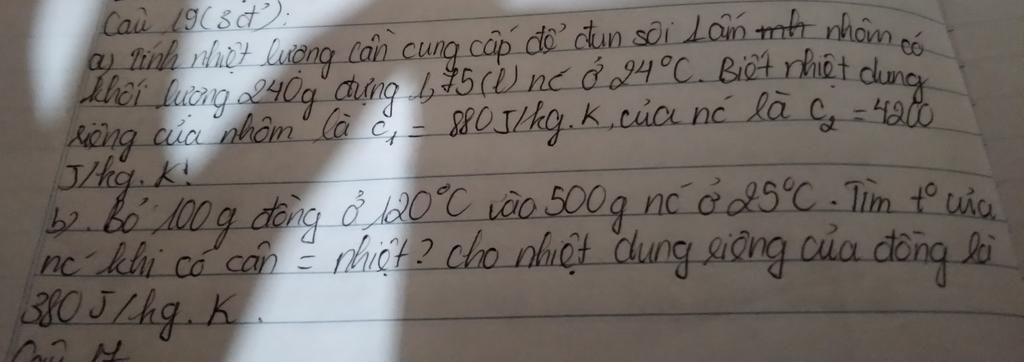 Câu 19(3đ):
a) Tính nhiệt lượng cần cung cấp để đun sôi 1 ấm nhôm có
khối lượng 240g đựng 1,75(l) nc ở 24°C. Biết nhiệt dung
riêng của nhôm là c₁ = 880J/kg.K, của nc là c₂ = 4200
J/kg.K!
b). Bỏ 100g đồng ở 120°C vào 500g nc ở 25°C. Tìm t° của
nc khi có cân = nhiệt? cho nhiệt dung riêng của đồng là
380J/kg.K.
Câu 17